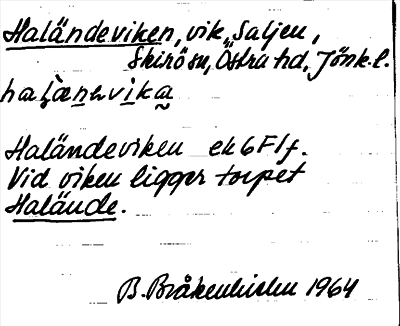 Haländeviken, vik, Saljen,
Skirö sn, Östra hd, Jönk.l.
Haländeviken ek 6 F1f.
Vid viken ligger torpet
Halände.
B. Bråkenhielm 1964